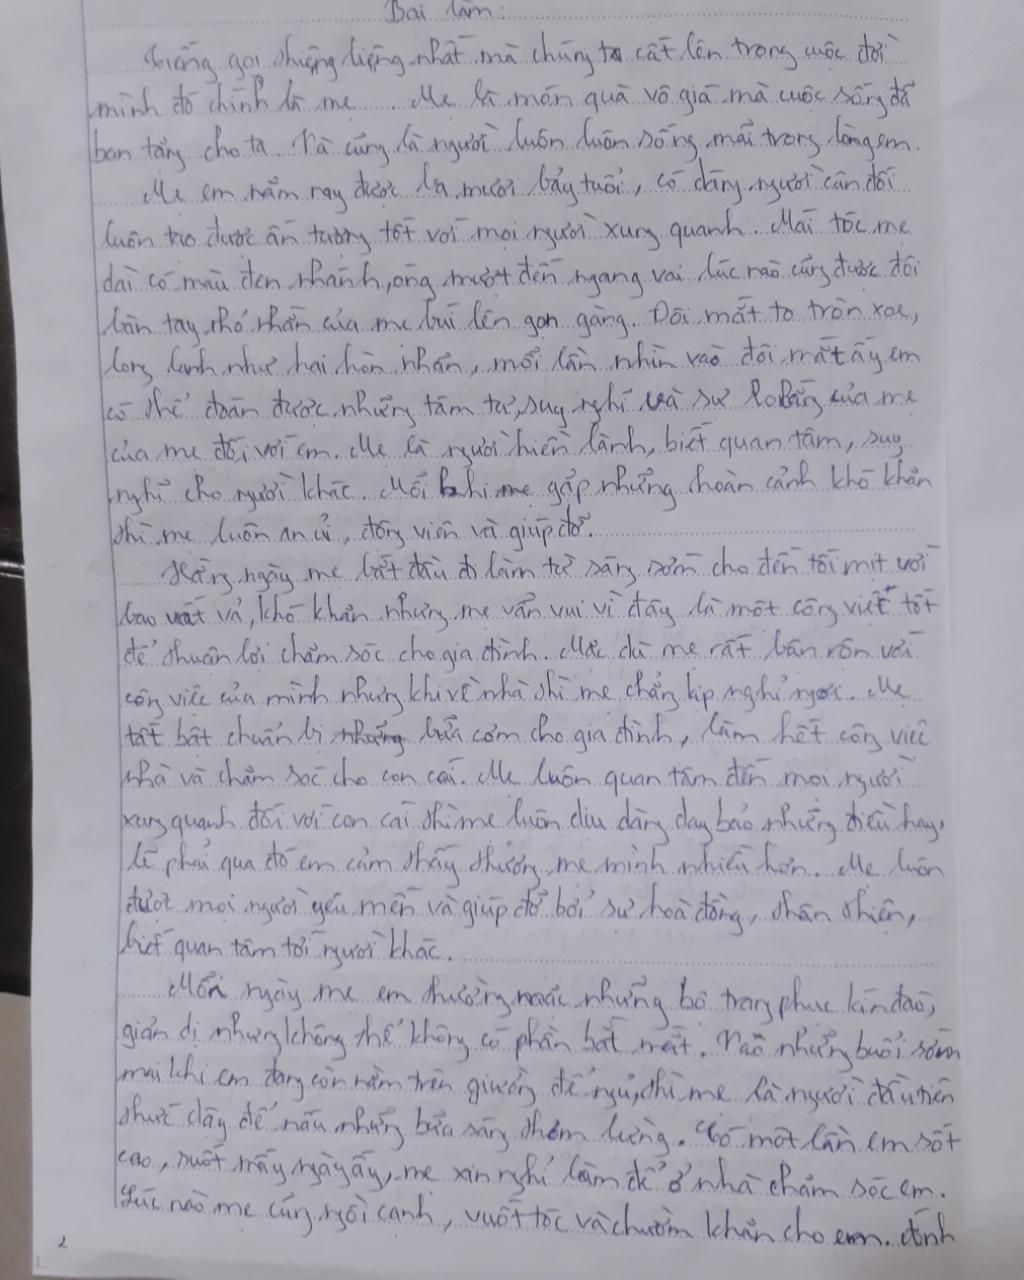 Bài làm:
Tiếng gọi thiêng liêng nhất mà chúng ta cất lên trong cuộc đời
mình đó chính là mẹ. Mẹ là món quà vô giá mà cuộc sống đã
ban tặng cho ta. Và cũng là người luôn luôn sống mãi trong lòng em.
Mẹ em năm nay được ba mươi bảy tuổi, có dáng người cân đối
luôn tạo được ấn tượng tốt với mọi người xung quanh. Mái tóc mẹ
dài có màu đen nhánh, óng mượt đến ngang vai lúc nào cũng được đôi
bàn tay nhỏ nhắn của mẹ búi lên gọn gàng. Đôi mắt to tròn xoe,
long lanh như hai hòn nhãn, mỗi lần nhìn vào đôi mắt ấy em
có thể đoán được những tâm tư, suy nghĩ và sự lo lắng của mẹ
của mẹ đối với em. Mẹ là người hiền lành, biết quan tâm, suy
nghĩ cho người khác. Mỗi khi mẹ gặp những hoàn cảnh khó khăn
thì mẹ luôn an ủi, động viên và giúp đỡ.
Hằng ngày mẹ bắt đầu đi làm từ sáng sớm cho đến tối mịt với
bao vất vả, khó khăn nhưng mẹ vẫn vui vì đây là một công việc tốt
để thuận lợi chăm sóc cho gia đình. Mặc dù mẹ rất bận rộn với
công việc của mình nhưng khi về nhà thì mẹ chẳng kịp nghỉ ngơi. Mẹ
tất bật chuẩn bị những bữa cơm cho gia đình, làm hết công việc
nhà và chăm sóc cho con cái. Mẹ luôn quan tâm đến mọi người
xung quanh đối với con cái thì mẹ luôn dịu dàng dạy bảo những điều hay,
lẽ phải qua đó em cảm thấy thương mẹ mình nhiều hơn. Mẹ luôn
được mọi người yêu mến và giúp đỡ bởi sự hoà đồng, thân thiện,
biết quan tâm tới người khác.
Mỗi ngày mẹ em thường mặc những bộ trang phục kín đáo,
giản dị nhưng không thể không có phần bắt mắt. Vào những buổi sớm
mai khi em đang còn nằm trên giường để ngủ, thì mẹ là người đầu tiên
thức dậy để nấu những bữa sáng thơm lừng. Có một lần em sốt
cao, suốt mấy ngày ấy, mẹ xin nghỉ làm để ở nhà chăm sóc em.
Lúc nào mẹ cũng ngồi cạnh, vuốt tóc và chườm khăn cho em.
2